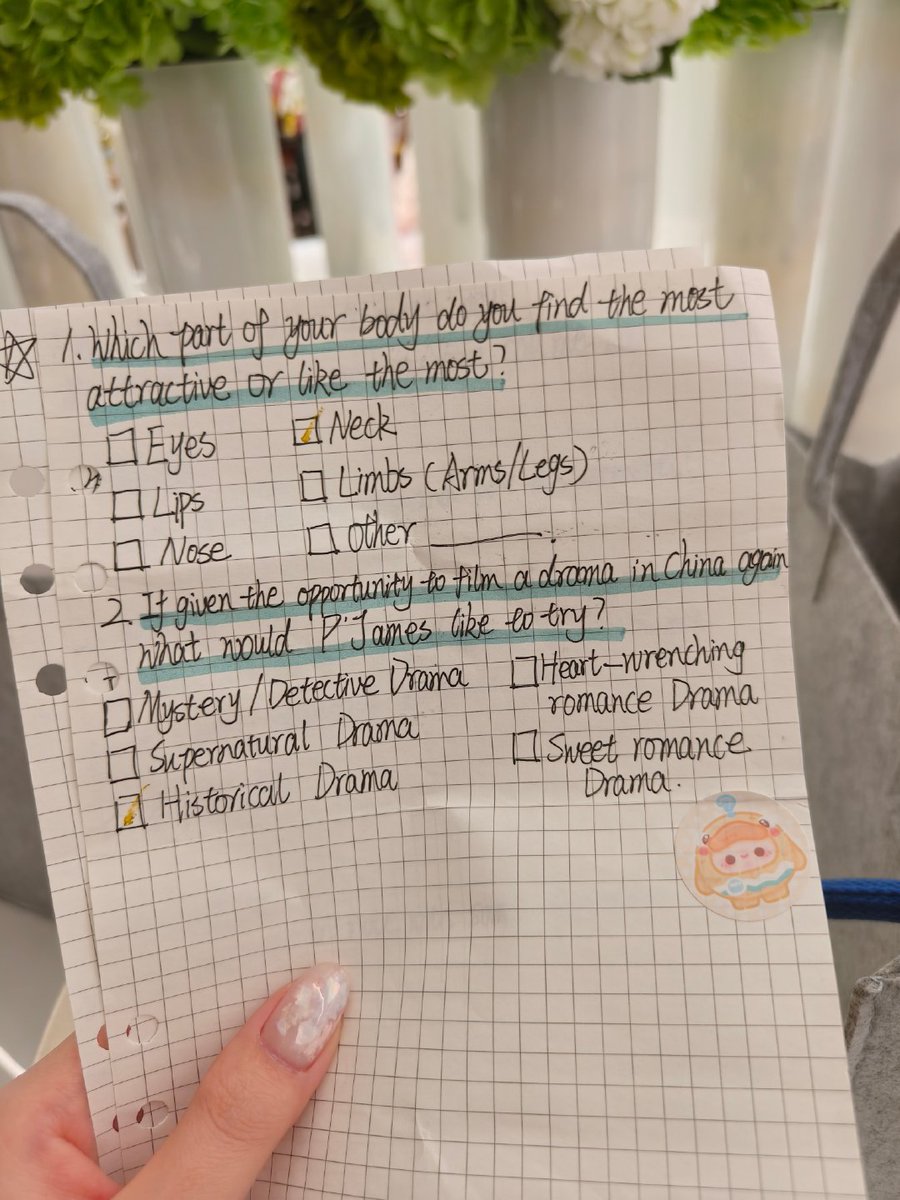 1. Which part of your body do you find the most
attractive or like the most?
Eyes
Neck
Lips
Limbs (Arms/Legs)
Nose
Other
2. If given the opportunity to film a drama in China again
what would P'James like to try?
Mystery/Detective Drama
Heart-wrenching
romance Drama
Supernatural Drama
Sweet romance
Drama.
Historical Drama